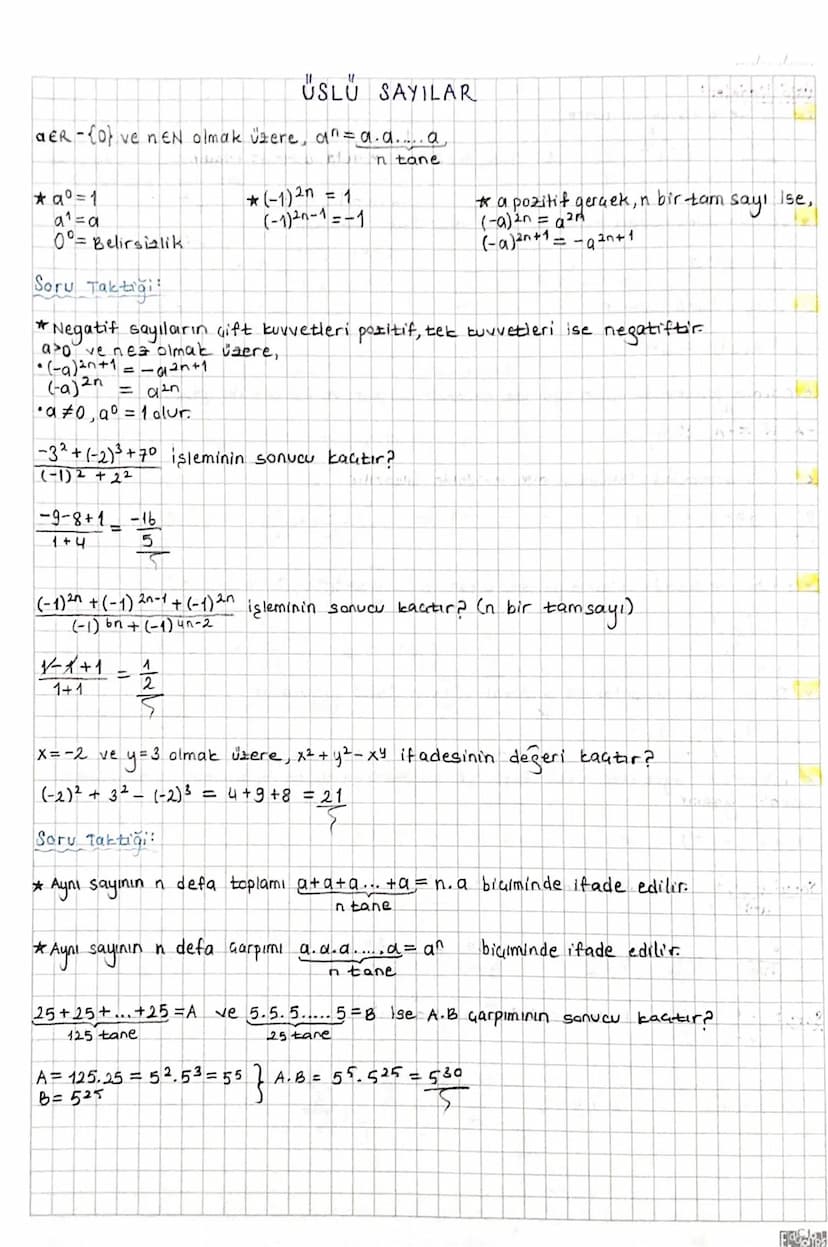 ÜSLÜ SAYILAR
a∈R-{0} ve n∈N olmak üzere, aⁿ = a.a.....a
n tane
★ a⁰ = 1
a¹ = a
0⁰ = Belirsizlik
★ (-1)²ⁿ = 1
(-1)²ⁿ⁻¹ = -1
★ a pozitif gerçek, n bir tam sayı ise,
(-a)²ⁿ = a²ⁿ
(-a)²ⁿ⁺¹ = -a²ⁿ⁺¹
Soru Taktiği:
★ Negatif sayıların çift kuvvetleri pozitif, tek kuvvetleri ise negatiftir.
a>0 ve n∈z olmak üzere,
• (-a)²ⁿ⁺¹ = -a²ⁿ⁺¹
(-a)²ⁿ = a²ⁿ
• a≠0, a⁰ = 1 olur.
-3² + (-2)³ + 7⁰ işleminin sonucu kaçtır?
(-1)² + 2²
-9-8+1 = -16
1+4 5
(-1)²ⁿ + (-1)²ⁿ⁻¹ + (-1)²ⁿ işleminin sonucu kaçtır? (n bir tamsayı)
(-1)⁶ⁿ + (-1)⁴ⁿ⁻²
1-1+1 = 1
1+1 2
x=-2 ve y=3 olmak üzere, x² + y² - xʸ ifadesinin değeri kaçtır?
(-2)² + 3² - (-2)³ = 4+9+8 = 21
Soru Taktiği:
★ Aynı sayının n defa toplamı a+a+a...+a = n.a biçiminde ifade edilir.
n tane
★ Aynı sayının n defa çarpımı a.a.a.....a = aⁿ biçiminde ifade edilir.
n tane
25+25+...+25 = A ve 5.5.5.....5 = B ise A.B çarpımının sonucu kaçtır?
125 tane 25 tane
A = 125.25 = 5².5³ = 5⁵ } A.B = 5⁵.5²⁵ = 5³⁰
B = 5²⁵